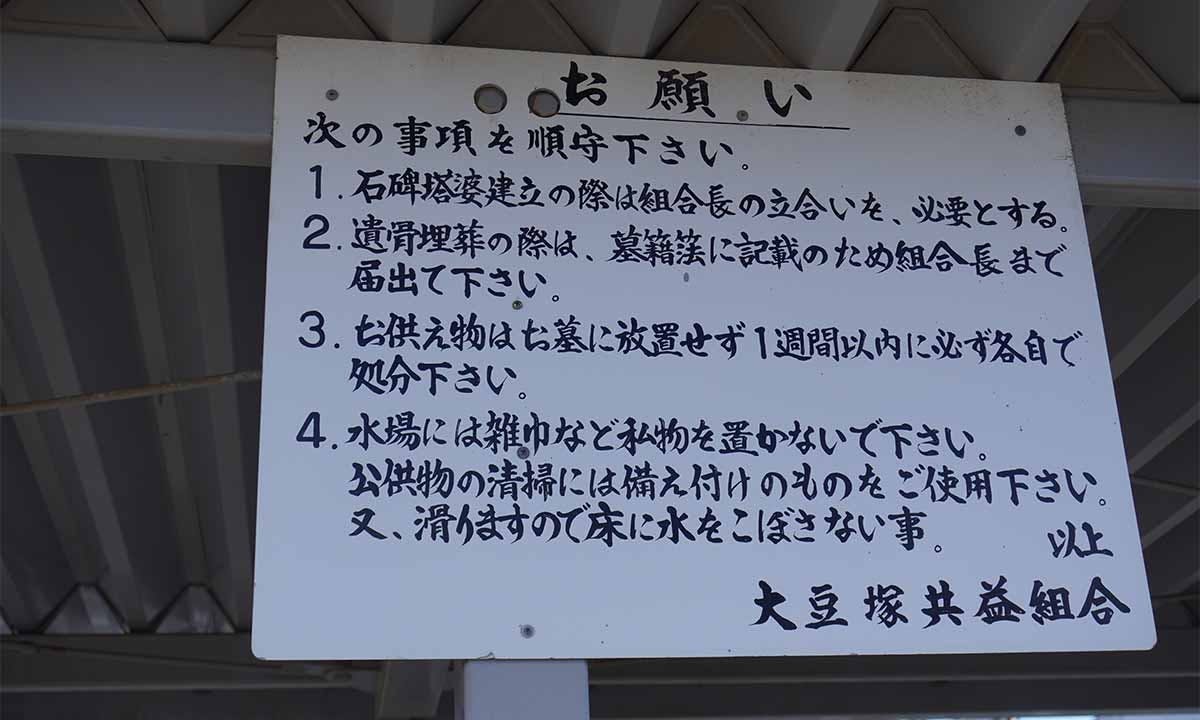 お願い
次の事項を順守下さい。
1. 石碑塔婆建立の際は組合長の立合いを、必要とする。
2. 遺骨埋葬の際は、墓籍簿に記載のため組合長まで
届出て下さい。
3. お供え物はお墓に放置せず1週間以内に必ず各自で
処分下さい。
4. 水場には雑巾など私物を置かないで下さい。
公供物の清掃には備え付けのものをご使用下さい。
又、滑りますので床に水をこぼさない事。
以上
大豆塚共益組合